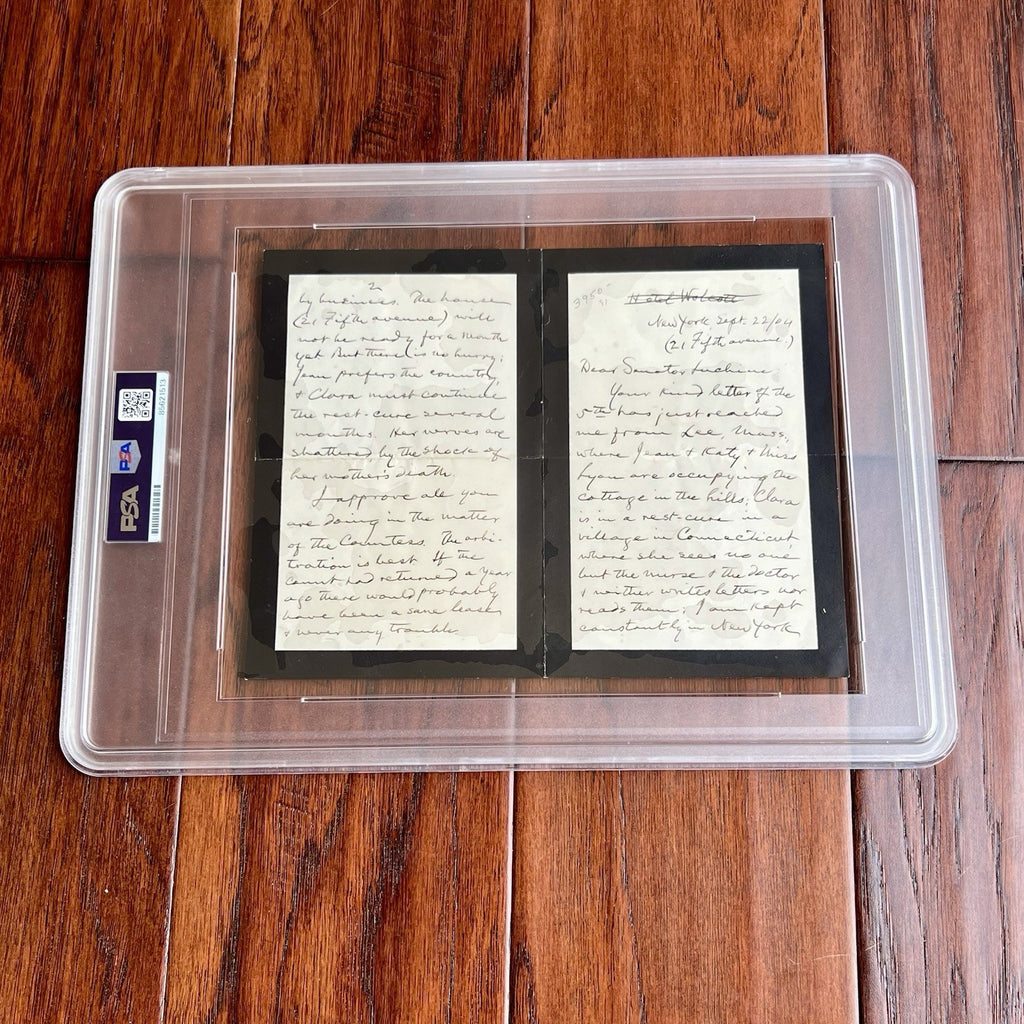 3950⁻
Hotel Wolcott
New York Sept. 22/04
(21 Fifth avenue.)
Dear Senator Luchini
Your kind letter of the
5th has just reached
me from Lee, Mass.,
where Jean & Katy &
are occupying the
cottage in the hills; Clara
is in a rest-cure in a
village in Connecticut,
where she sees no one
but the nurse & the doctor
& neither writes letters nor
reads them; I am kept
constantly in New York
2
by business. The house
(21 Fifth avenue) will
not be ready for a month
yet. But there is no hurry;
Jean prefers the country,
& Clara must continue
the rest-cure several
months. Her nerves are
shattered by the shock of
her mother's death.
I approve all you
are doing in the matter
of the Countess. The arbi-
tration is best. If the
Count had returned a year
ago there would probably
have been a sane lease
& never any trouble.
PSA
PSA
85621513